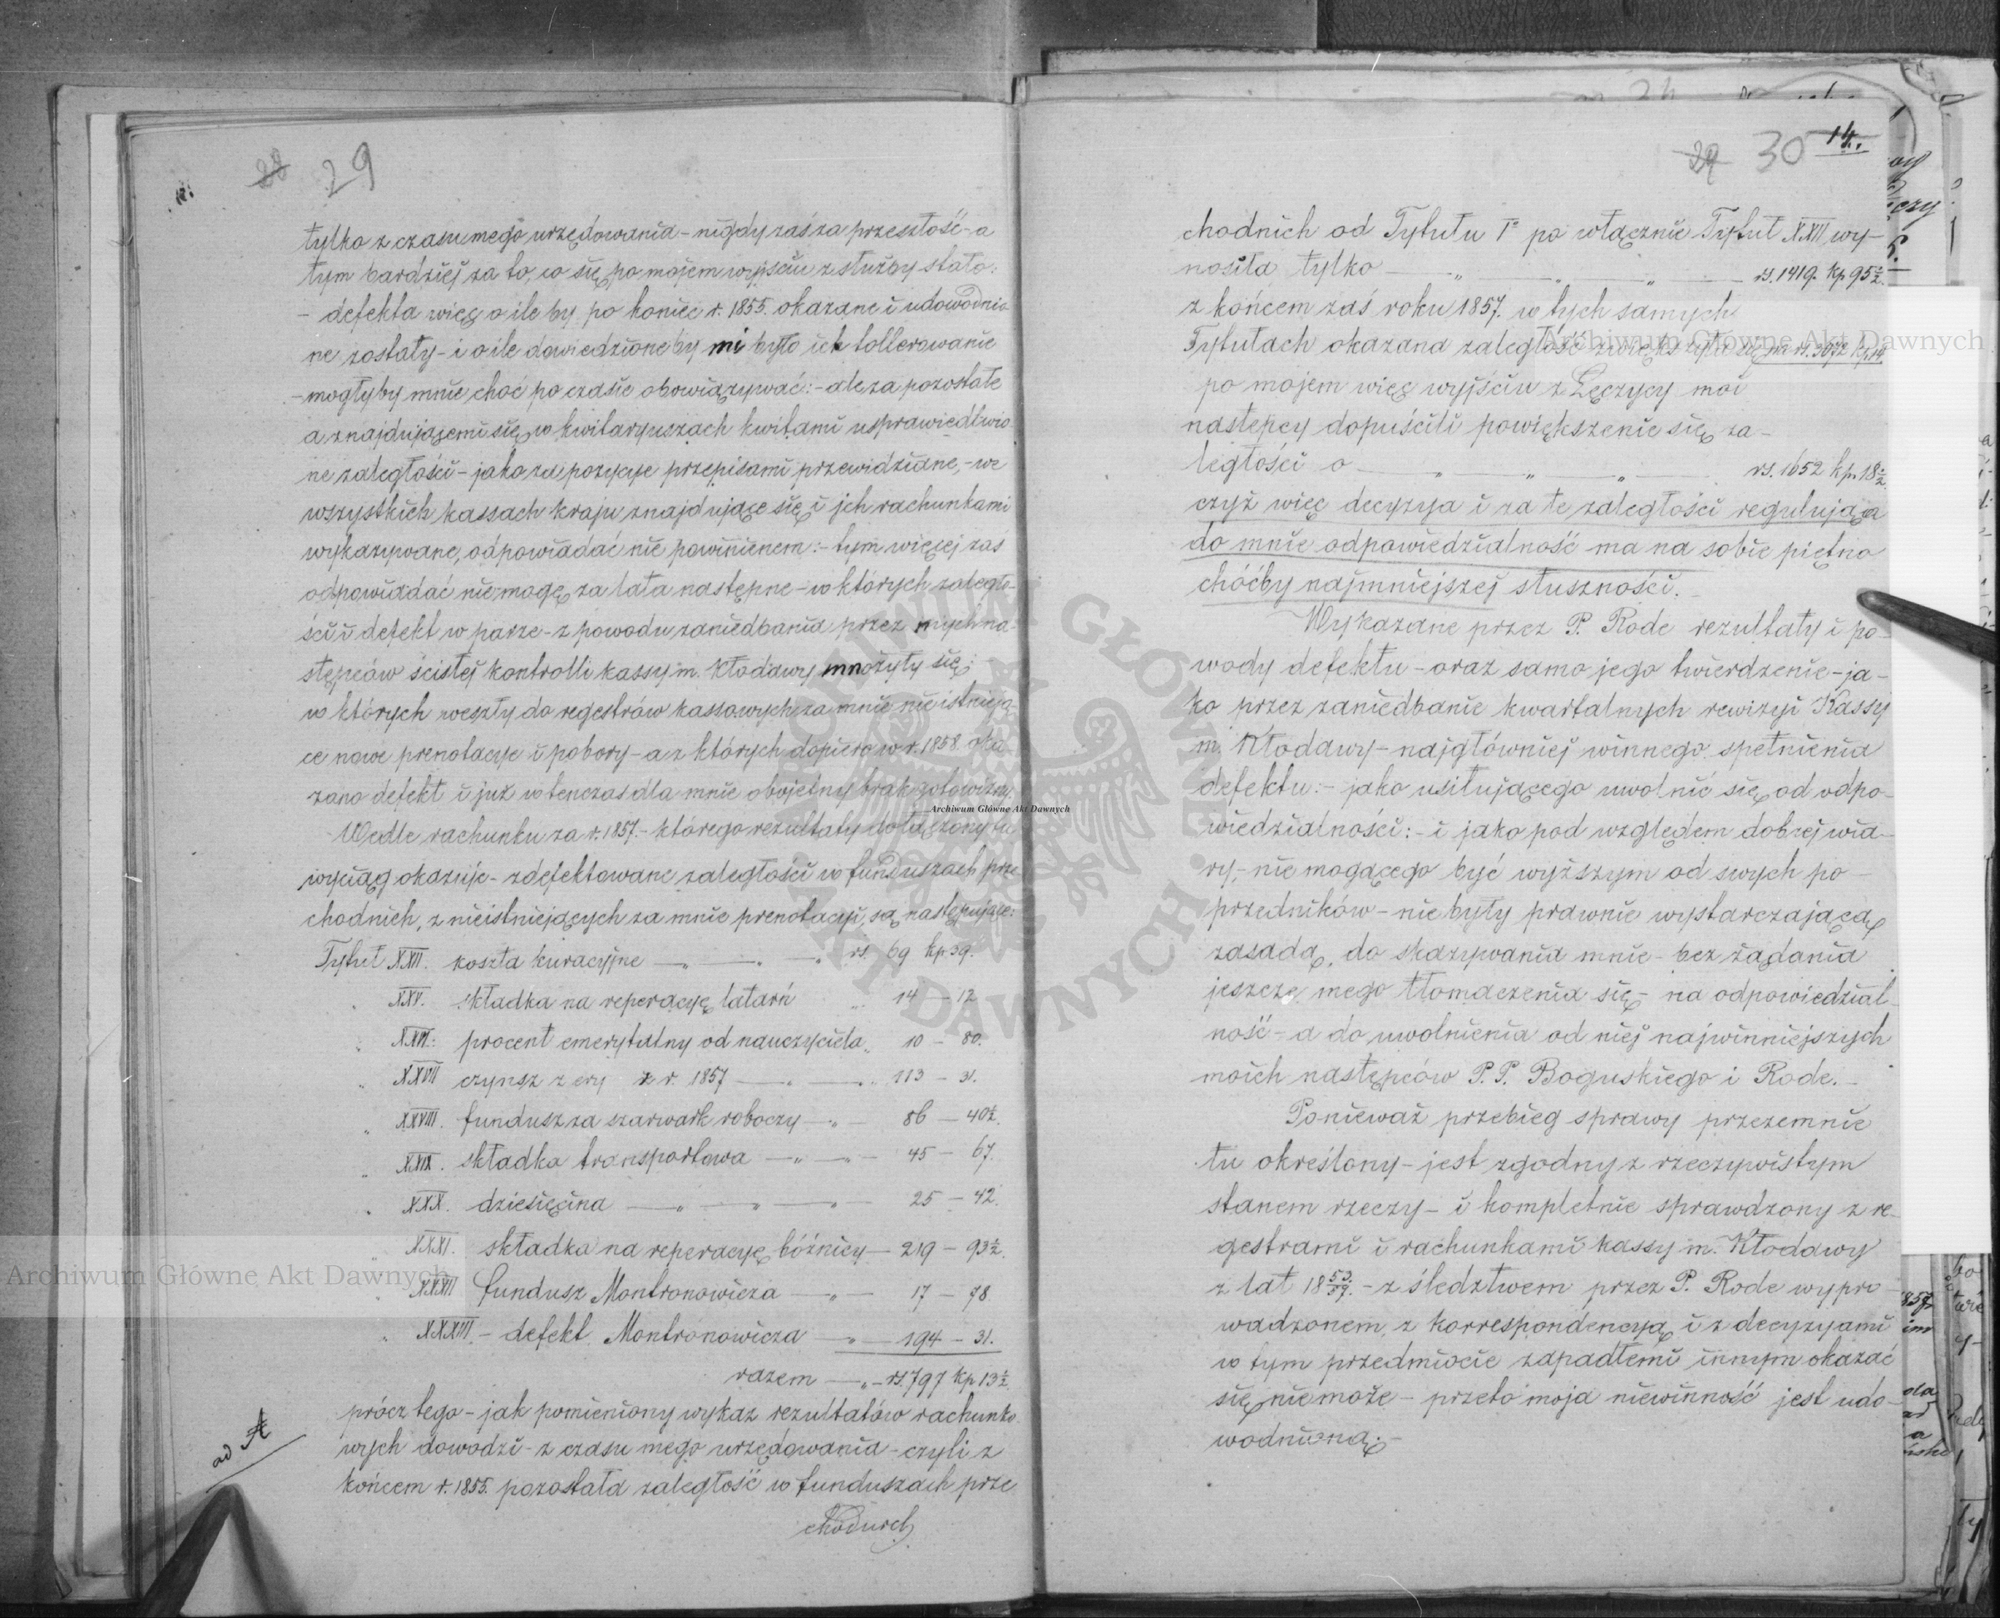 28 29
tylko z czasu mego urzędowania – nigdy zaś za przeszłość – a
tym bardziej za to, co się po mojem wyjściu z służby stało:
– defekta więc o ile by po koniec r. 1855. okazane i udowodnio
ne zostały – i o ile dowiedzione by mi było ich tollerowanie
– mogłyby mnie choć po czasie obowiązywać: – ale za pozostałe
a znajdującemi się w kwitaryuszach kwitami usprawiedliwio
ne zaległości – jako za pozycye przepisami przewidziane, – we
wszystkich kassach kraju znajdujące się i ich rachunkami
wykazywane, odpowiadać nie powinienem: – tym więcej zaś
odpowiadać nie mogę za lata następne – w których zaległo-
ści i defekt w parze – z powodu zaniedbania przez mych na-
stępców ścisłej kontrolli kassy m. Kłodawy mnożyły się:
w których weszły do regestrów kassowych za mnie nieistnieją
ce nowe prenotacye i pobory – a z których dopiero w r. 1858. oka-
zano defekt i już wtenczas dla mnie obojętny brak gotowizny.
Wedle rachunku za r. 1857. – którego rezultaty dołączony tu
wyciąg okazuje – zdefektowane zaległości w funduszach prze
chodnich, z nieistniejących za mnie prenotacyi, są następujące:
Tytuł XXII. koszta kuracyjne — „ — „ — „ rs. 69 kp 39.
„ XXV. składka na reperacyę latarń „ 14 — 12
„ XXVI: procent emerytalny od nauczyciela „ 10 — 80.
„ XXVII czynsz z ery z r. 1857 — „ — „ 113 — 31.
„ XXVIII. fundusz za szarwark roboczy — „ — 86 — 40½.
„ XXIX. składka transportowa — „ — 45 — 67.
„ XXX. dziesięcina — „ — „ — „ — 25 — 42.
„ XXXI. składka na reperacyę bóżnicy — 219 — 93½.
„ XXXII fundusz Montronowicza — „ — 17 — 78
„ XXXIII. – defekt Montronowicza — „ — 194 — 31.
razem — „ – rs. 797 kp 13½
prócz tego – jak pomieniony wykaz rezultatów rachunko.
wych dowodzi – z czasu mego urzędowania – czyli z
końcem r. 1855. pozostała zaległość w funduszach prze
chodnich
ad A
29 30 14.
chodnich od Tytułu I° po włącznie Tytuł XXII, wy-
nosiła tylko — „ — „ — „ — rs. 1419. kp 95½.
z końcem zaś roku 1857. w tych samych
Tytułach okazana zaległość zwiększyła się na rs. 3072 kp. 14
po mojem więc wyjściu z Łęczycy moi
następcy dopuścili powiększenie się za-
ległości o — „ — „ — „ — rs. 1652 kp. 18½.
czyż więc decyzya i za te zaległości regulująca
do mnie odpowiedzialność ma na sobie piętno
choćby najmniejszej słuszności. –
Wykazane przez P. Rode rezultaty i po-
wody defektu – oraz samo jego twierdzenie – ja-
ko przez zaniedbanie kwartalnych rewizyi Kassy
m. Kłodawy – najgłówniej winnego spełnienia
defektu: – jako usiłującego uwolnić się od odpo-
wiedzialności: – i jako pod względem dobrej wia-
ry, – nie mogącego być wyższym od swych po-
przedników – nie były prawnie wystarczającą
zasadą, do skazywania mnie – bez żądania
jeszcze mego tłomaczenia się – na odpowiedzial-
ność – a do uwolnienia od niej najwinniejszych
moich następców P. P. Boguskiego i Rode. –
Ponieważ przebieg sprawy przezemnie
tu określony – jest zgodny z rzeczywistym
stanem rzeczy – i kompletnie sprawdzony z re-
gestrami i rachunkami kassy m. Kłodawy
z lat 1853/59. – z śledztwem przez P. Rode wypro-
wadzonem, z korrespondencyą i z decyzyami
w tym przedmiocie zapadłemi innym okazać
się nie może – przeto moja niewinność jest udo-
wodnioną. –
Archiwum Główne Akt Dawnych
Archiwum Główne Akt Dawnych
Archiwum Główne Akt Dawnych
ARCHIWUM GŁÓWNE AKT DAWNYCH